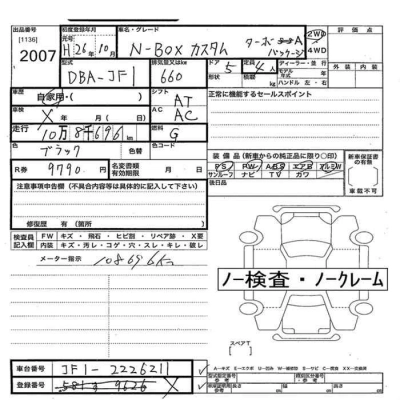 出品番号
[1136]
2007
初度登録年月
元号
H 26年 10月
車名・グレード
N-BOX カスタム ターボ A パッケージ
2WD
4WD
評価点
型式
DBA-JF1
排気量又はkw
660
ドア
5
定員
4人
ディーラー・並行
モデル年式
ハンドル 左・右
外装
内装
車歴
自家用・( )
シフト
AT
車検
X 年 月
AC
AC
正常に機能するセールスポイント
走行
10万8千696km
燃料
G
色
ブラック
色替
色コード
装備品(新車からの純正品に限り○印)
PS PW ABS エアB アルミW
サンルーフ ナビ TV カワ
新車保証書の有無
有
車載不可
R券
9790 円
名変期限
有効期限
月 日
後日品
注意事項申告欄(不具合内容等は具体的に記入して下さい)
修復歴 有(箇所 )
検査員記入欄
FW キズ・飛石・ヒビ割・リペア跡・X要
内装 キズ・汚レ・コゲ・穴・スレ・キレ・破レ
メーター指示 108696Km
ノー検査・ノークレーム
スペアT
車台番号
JF1-2226211
登録番号
581 9626 X
A-キズ E-エクボ U-凹み W-補修跡 S-サビ C-腐食 XX-交換済
型式指定番号
類別区分番号